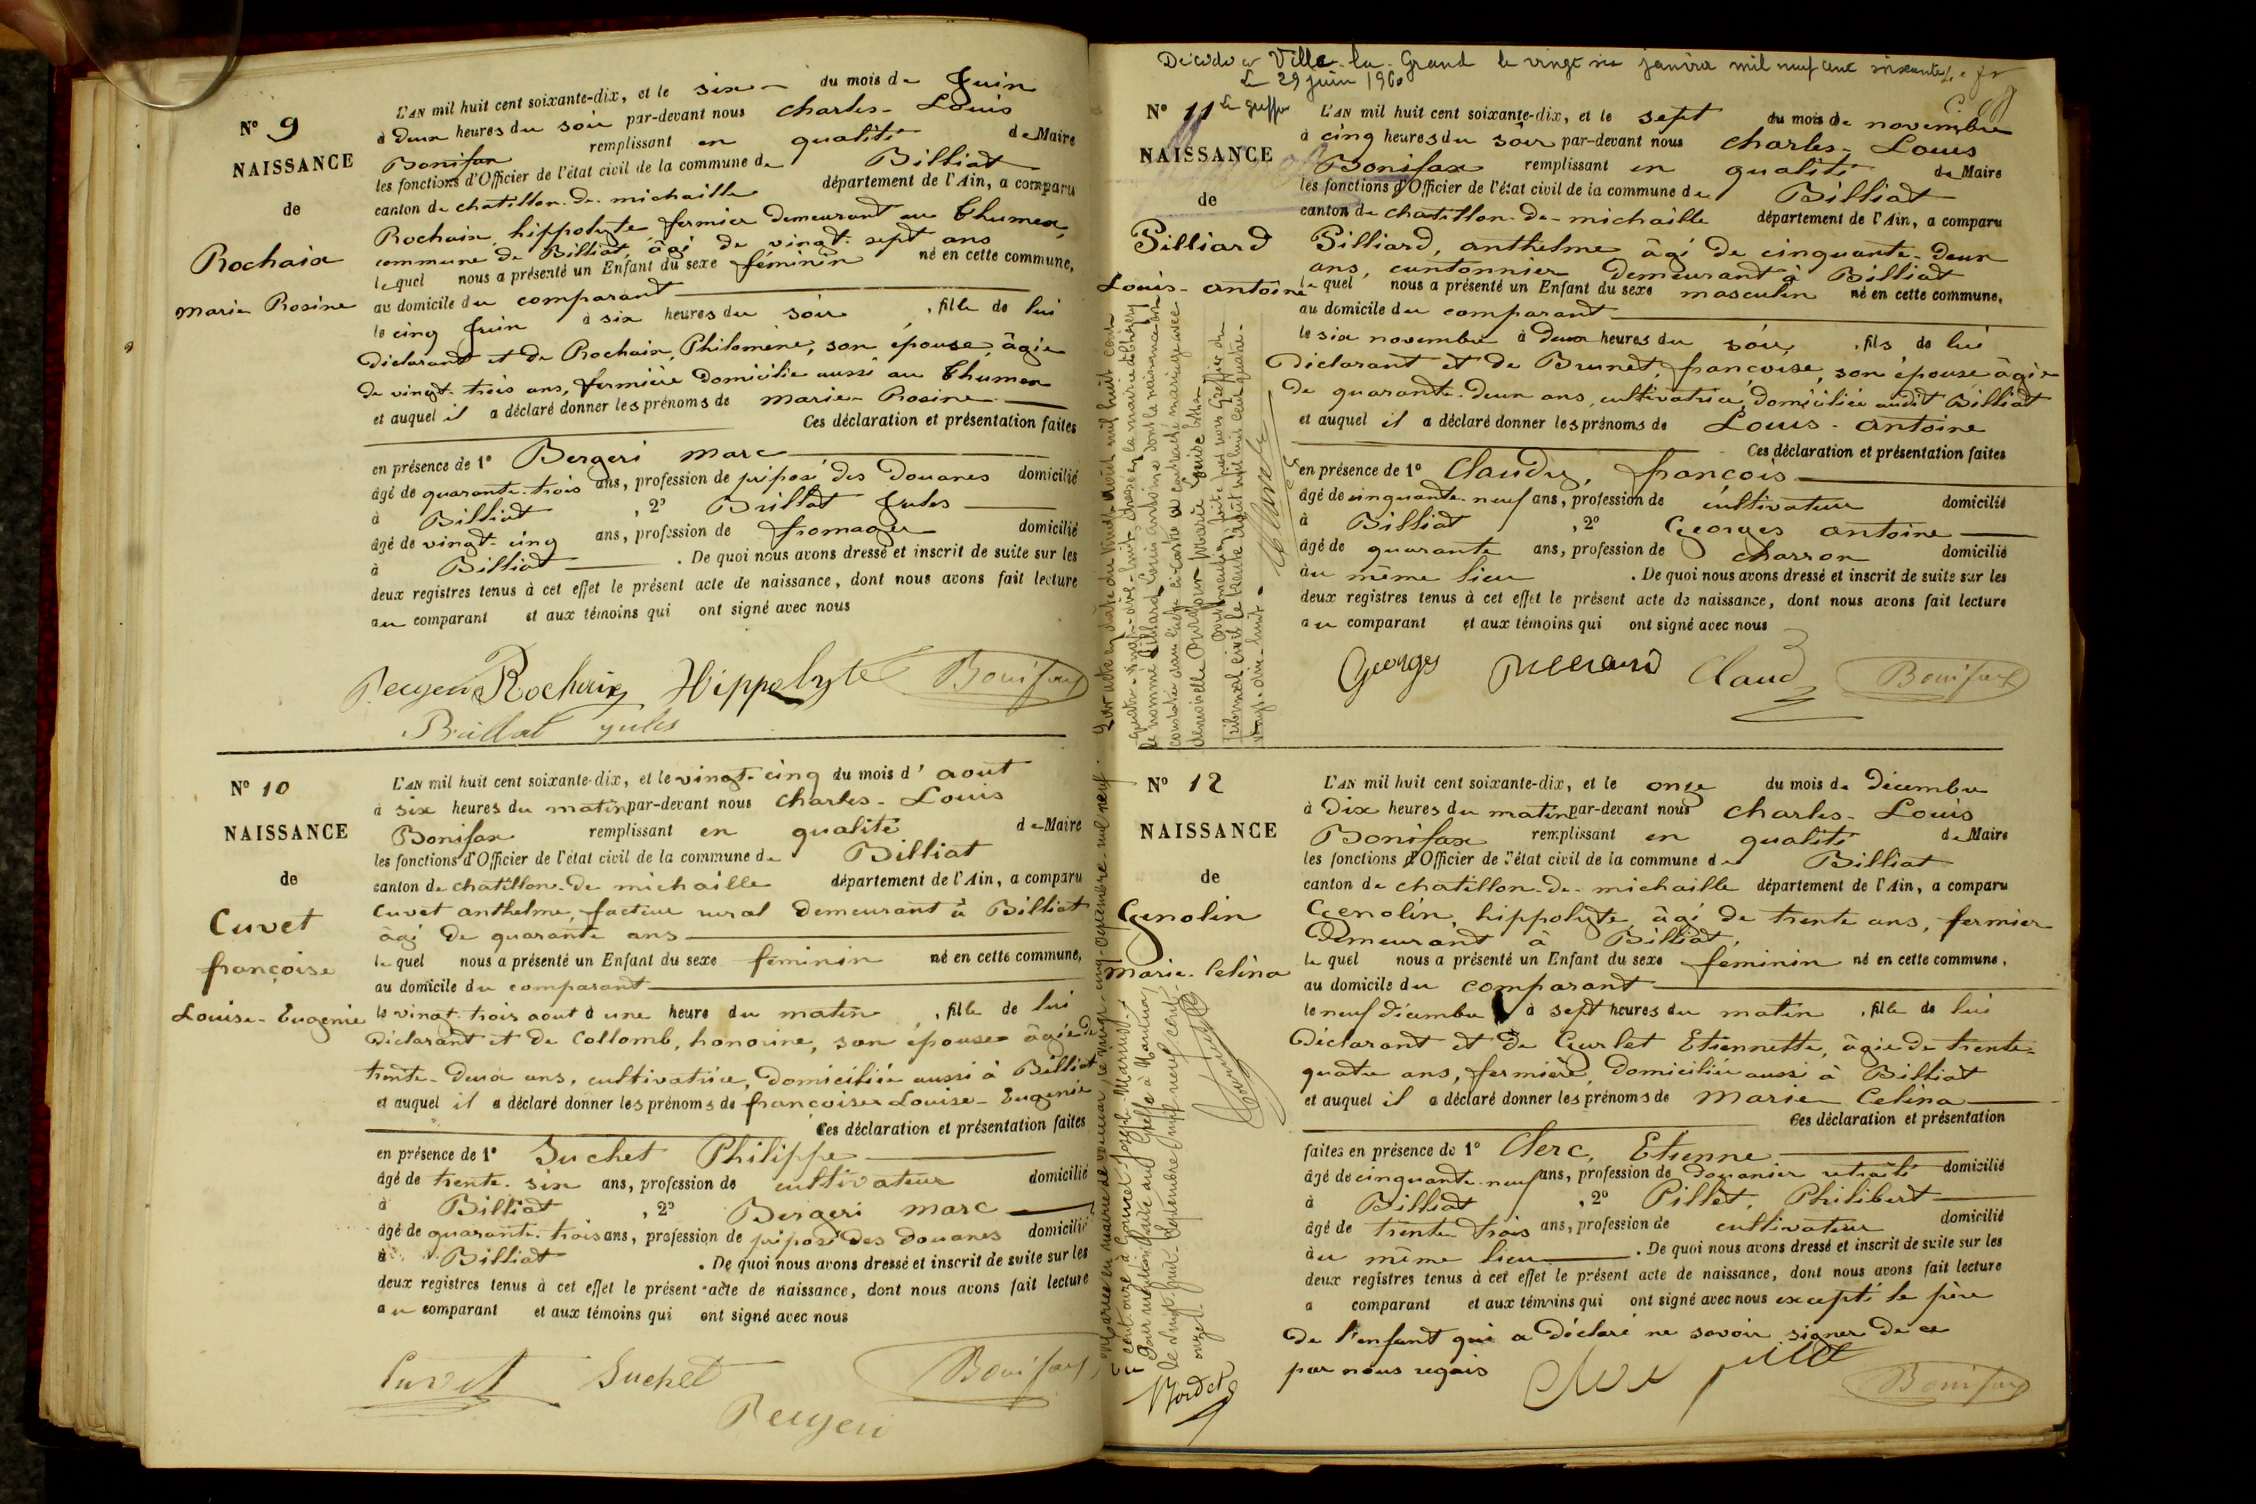 N° 9
NAISSANCE
de
Rochaix
Marie Rosine
L'AN mil huit cent soixante-dix, et le six du mois de Juin
à deux heures du soir par-devant nous Charles-Louis
Bonifax remplissant en qualité de Maire
les fonctions d'Officier de l'état civil de la commune de Billiat
canton de chatillon-de-michaille département de l'Ain, a comparu
Rochaix, hippolyte fermier demeurant au Thumex,
commune de Billiat, âgé de vingt-sept ans
lequel nous a présenté un Enfant du sexe féminin né en cette commune,
au domicile du comparant
le cinq Juin à six heures du soir, fille de lui
déclarant et de Rochaix, Philomène, son épouse, âgée
de vingt-trois ans, fermière domiciliée aussi au Thumex
et auquel il a déclaré donner les prénoms de Marie-Rosine
Ces déclaration et présentation faites
en présence de 1° Bergeri marc
âgé de quarante-trois ans, profession de préposé des douanes domicilié
à Billiat, 2° Brillat Jules
âgé de vingt-cinq ans, profession de fromager domicilié
à Billiat. De quoi nous avons dressé et inscrit de suite sur les
deux registres tenus à cet effet le présent acte de naissance, dont nous avons fait lecture
au comparant et aux témoins qui ont signé avec nous
Rochaix Hippolyte Bonifax
Brillat Jules
N° 10
NAISSANCE
de
Cuvet
françoise
Louise-Eugénie
L'AN mil huit cent soixante-dix, et le vingt-cinq du mois d'aout
à six heures du matin par-devant nous Charles-Louis
Bonifax remplissant en qualité de Maire
les fonctions d'Officier de l'état civil de la commune de Billiat
canton de chatillon-de-michaille département de l'Ain, a comparu
Cuvet anthelme, facteur rural demeurant à Billiat
âgé de quarante ans
lequel nous a présenté un Enfant du sexe féminin né en cette commune,
au domicile du comparant
le vingt-trois aout à une heure du matin, fille de lui
déclarant et de Collomb, honorine, son épouse âgée de
trente-deux ans, cultivatrice, domiciliée aussi à Billiat
et auquel il a déclaré donner les prénoms de françoise Louise-Eugénie
Ces déclaration et présentation faites
en présence de 1° Suchet Philippe
âgé de trente-six ans, profession de cultivateur domicilié
à Billiat, 2° Bergeri marc
âgé de quarante-trois ans, profession de préposé des douanes domicilié
à Billiat. De quoi nous avons dressé et inscrit de suite sur les
deux registres tenus à cet effet le présent acte de naissance, dont nous avons fait lecture
au comparant et aux témoins qui ont signé avec nous
Cuvet Suchet Bonifax
Décédé à Ville-la-Grand le vingt six janvier mil neuf cent soixante
Le 29 juin 1960
Le greffier
N° 11
NAISSANCE
de
Pilliard
Louis-antoine
L'AN mil huit cent soixante-dix, et le sept du mois de novembre
à cinq heures du soir par-devant nous Charles-Louis
Bonifax remplissant en qualité de Maire
les fonctions d'Officier de l'état civil de la commune de Billiat
canton de chatillon-de-michaille département de l'Ain, a comparu
Pilliard, anthelme âgé de cinquante-deux
ans, cantonnier demeurant à Billiat
lequel nous a présenté un Enfant du sexe masculin né en cette commune,
au domicile du comparant
le six novembre à deux heures du soir, fils de lui
déclarant et de Brunet, françoise, son épouse âgée
de quarante-deux ans, cultivatrice, domiciliée audit Billiat
et auquel il a déclaré donner les prénoms de Louis-antoine
Ces déclaration et présentation faites
en présence de 1° Claudy, françois
âgé de cinquante-neuf ans, profession de cultivateur domicilié
à Billiat, 2° Georges antoine
âgé de quarante ans, profession de charron domicilié
au même lieu. De quoi nous avons dressé et inscrit de suite sur les
deux registres tenus à cet effet le présent acte de naissance, dont nous avons fait lecture
au comparant et aux témoins qui ont signé avec nous
Georges Claud Bonifax
N° 12
NAISSANCE
de
Genolin
Marie-Celina
L'AN mil huit cent soixante-dix, et le onze du mois de décembre
à dix heures du matin par-devant nous Charles-Louis
Bonifax remplissant en qualité de Maire
les fonctions d'Officier de l'état civil de la commune de Billiat
canton de chatillon-de-michaille département de l'Ain, a comparu
Genolin, hippolyte, âgé de trente ans, fermier
demeurant à Billiat,
lequel nous a présenté un Enfant du sexe féminin né en cette commune,
au domicile du comparant
le neuf décembre à sept heures du matin, fille de lui
déclarant et de Gurlet Etiennette, âgée de trente-
quatre ans, fermière, domiciliée aussi à Billiat
et auquel il a déclaré donner les prénoms de Marie Celina
Ces déclaration et présentation
faites en présence de 1° Clerc, Etienne
âgé de cinquante-neuf ans, profession de douanier retraité domicilié
à Billiat, 2° Pillet, Philibert
âgé de trente trois ans, profession de cultivateur domicilié
au même lieu. De quoi nous avons dressé et inscrit de suite sur les
deux registres tenus à cet effet le présent acte de naissance, dont nous avons fait lecture
a comparant et aux témoins qui ont signé avec nous excepté le père
de l'enfant qui a déclaré ne savoir signer de ce
par nous requis
Bonifax